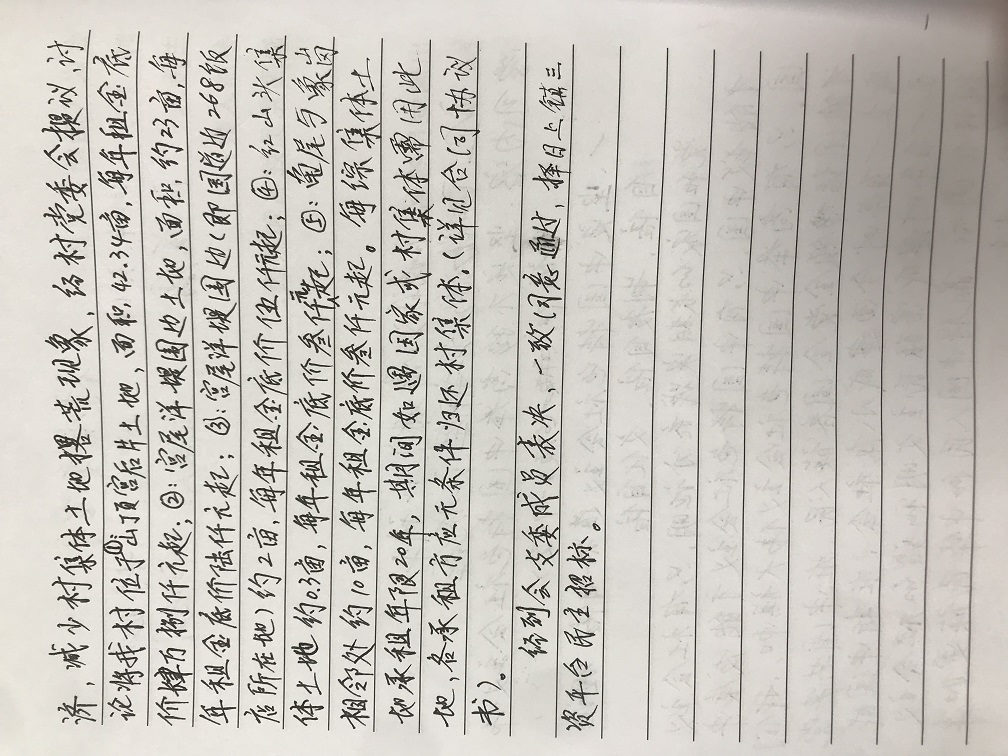 济，减少村集体土地撂荒现象，经村党委会提议，讨
论将我村位于①山顶宫后片土地，面积，42.34亩，每年租金底
价肆万捌仟元起；②：宫尾洋堤围边土地，面积，约23亩，每
年租金底价陆仟元起；③：宫尾洋堤围边（即国道边268饭
店所在地）约2亩，每年租金底价伍仟元起；④：红山头集
体土地约0.3亩，每年租金底价叁仟元起；⑤：龟尾与象岗
相邻处约10亩，每年租金底价叁仟元起。每综集体土
地承租年限20年，期间如遇国家或村集体需用此
地，各承租方应无条件归还村集体。（详见合同协议
书）。
经到会支委成员表决，一致同意通过，择日上镇三
资平台民主招标。